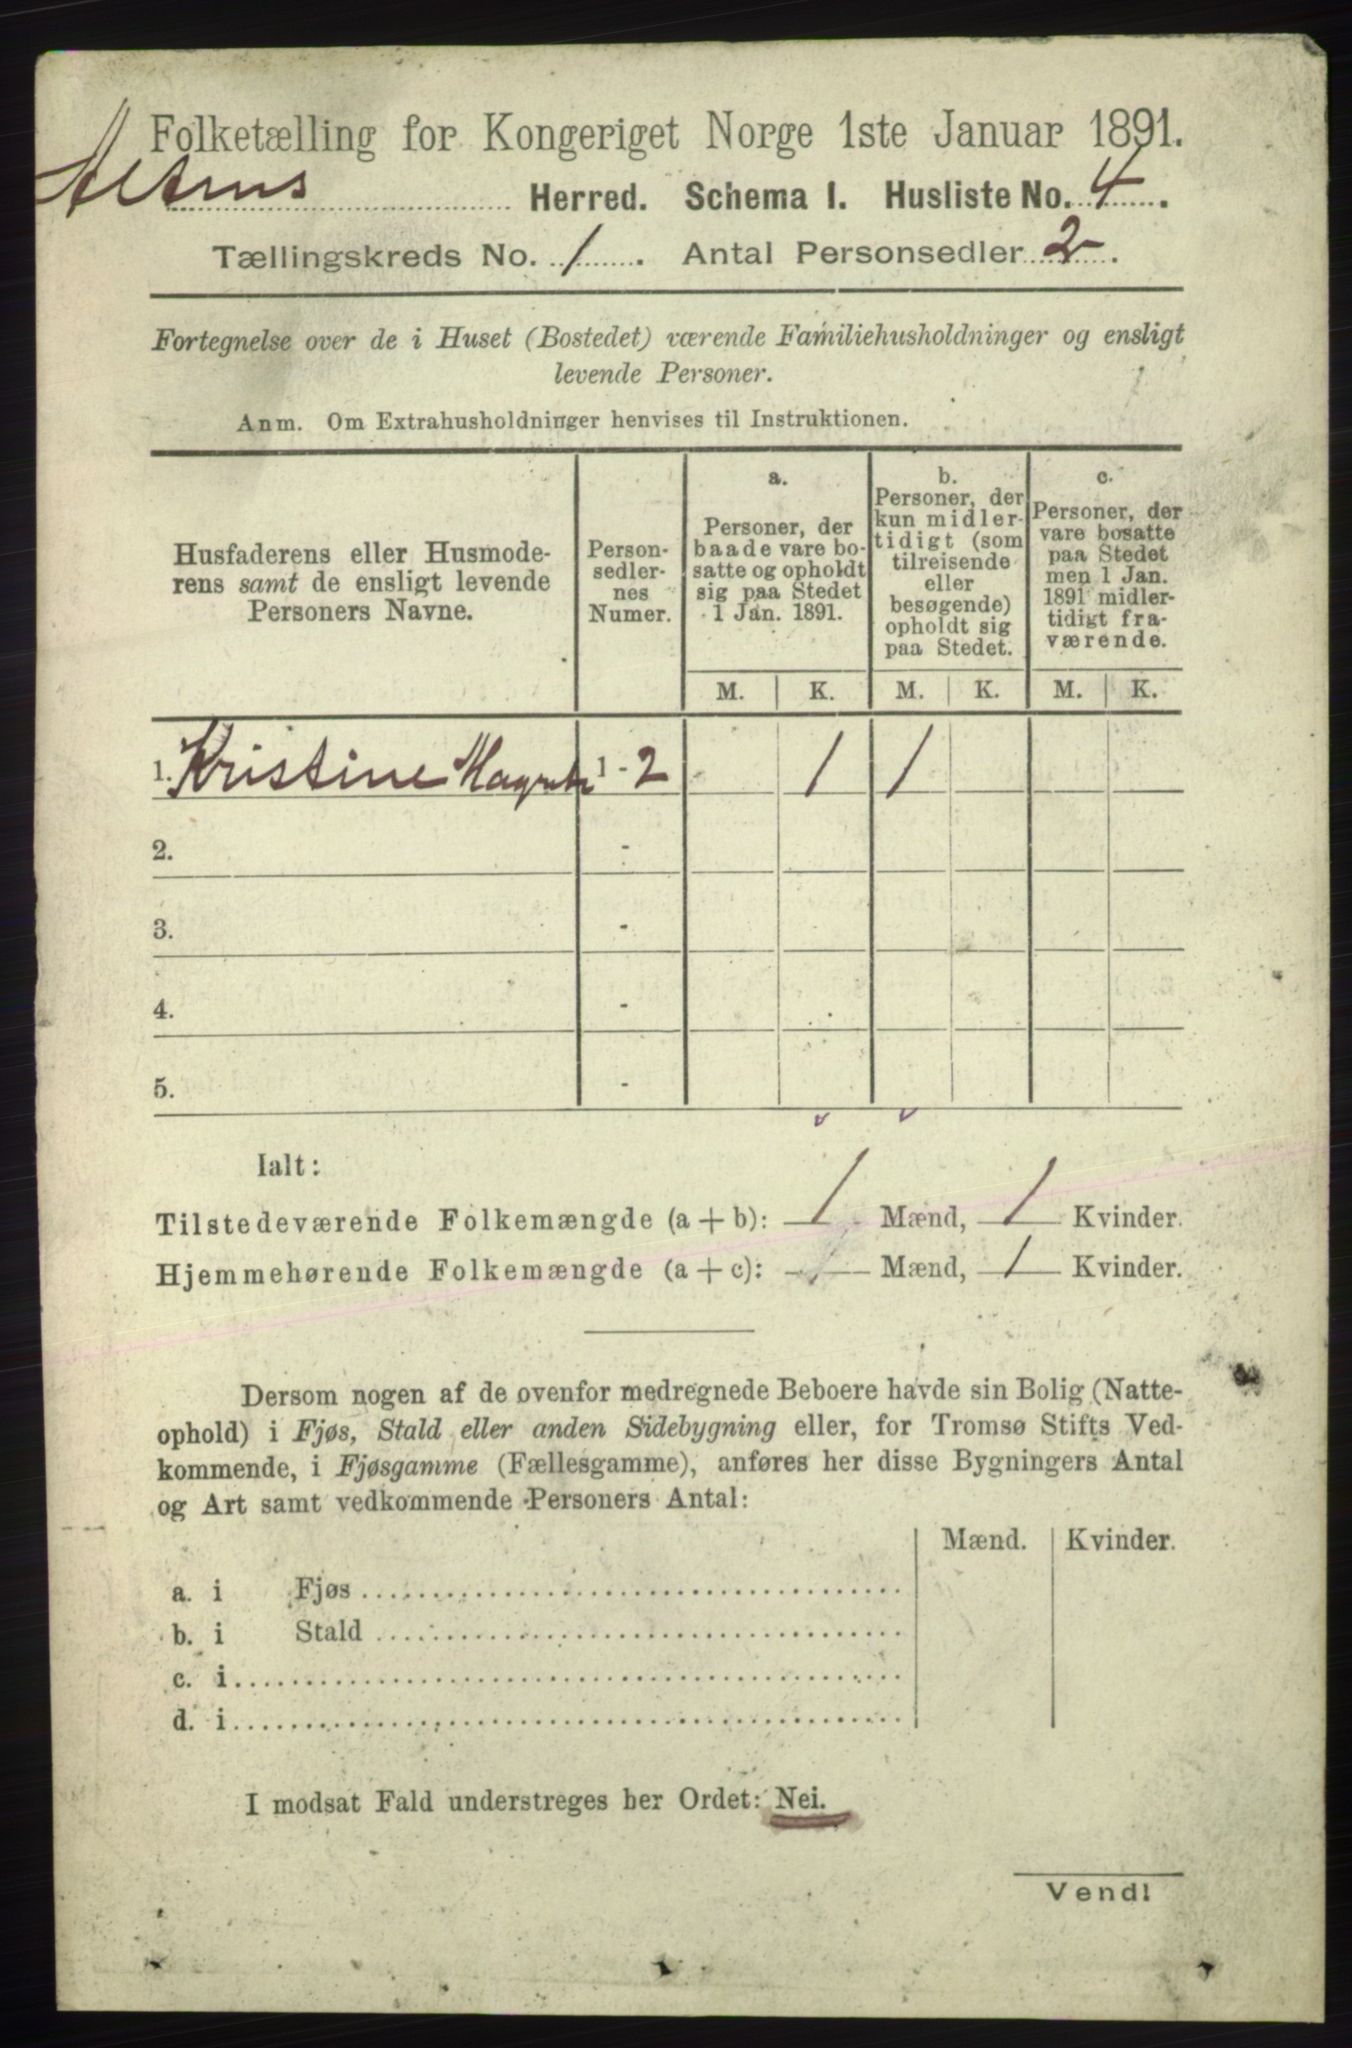 Folketælling for Kongeriget Norge 1ste Januar 1891.
Altens Herred. Schema I. Husliste No. 4.
Tællingskreds No. 1. Antal Personsedler 2.
Fortegnelse over de i Huset (Bostedet) værende Familiehusholdninger og ensligt
levende Personer.
Anm. Om Extrahusholdninger henvises til Instruktionen.
Husfaderens eller Husmode-
rens samt de ensligt levende
Personers Navne.
Person-
sedler-
nes
Numer.
a.
Personer, der
baade vare bo-
satte og opholdt
sig paa Stedet
1 Jan. 1891.
b.
Personer, der
kun midler-
tidigt (som
tilreisende
eller
besøgende)
opholdt sig
paa Stedet.
c.
Personer, der
vare bosatte
paa Stedet
men 1 Jan.
1891 midler-
tidigt fra-
værende.
M. K. M. K. M. K.
1. Kristine 1 - 2 1 1
2. -
3. -
4. -
5. -
Ialt:
Tilstedeværende Folkemængde (a + b): 1 Mænd, 1 Kvinder.
Hjemmehørende Folkemængde (a + c): - Mænd, 1 Kvinder.
Dersom nogen af de ovenfor medregnede Beboere havde sin Bolig (Natte-
ophold) i Fjøs, Stald eller anden Sidebygning eller, for Tromsø Stifts Ved-
kommende, i Fjøsgamme (Fællesgamme), anføres her disse Bygningers Antal
og Art samt vedkommende Personers Antal:
Mænd. Kvinder.
a. i Fjøs
b. i Stald
c. i
d. i
I modsat Fald understreges her Ordet: Nei.
Vend!